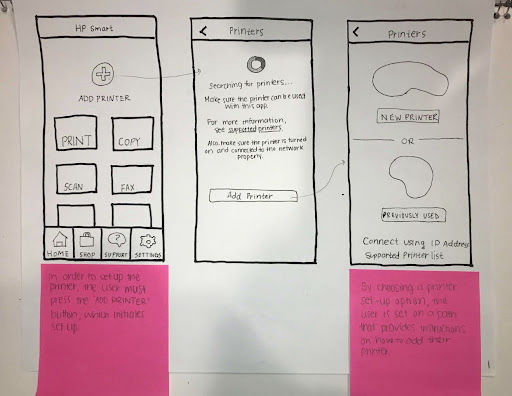 HP Smart
ADD PRINTER
PRINT
COPY
SCAN
FAX
HOME
SHOP
SUPPORT
SETTINGS
In order to set up the
printer, the user must
press the "ADD PRINTER"
button, which initiates
set up.
Printers
Searching for printers...
Make sure the printer can be used
with this app.
For more information,
see supported printers.
Also, make sure the printer is turned
on and connected to the network
properly.
Add Printer
Printers
NEW PRINTER
OR
PREVIOUSLY USED
Connect using ID Address
Supported Printer list
By choosing a printer
set-up option, the
user is set on a path
that provides instructions
on how to add their
printer.
1